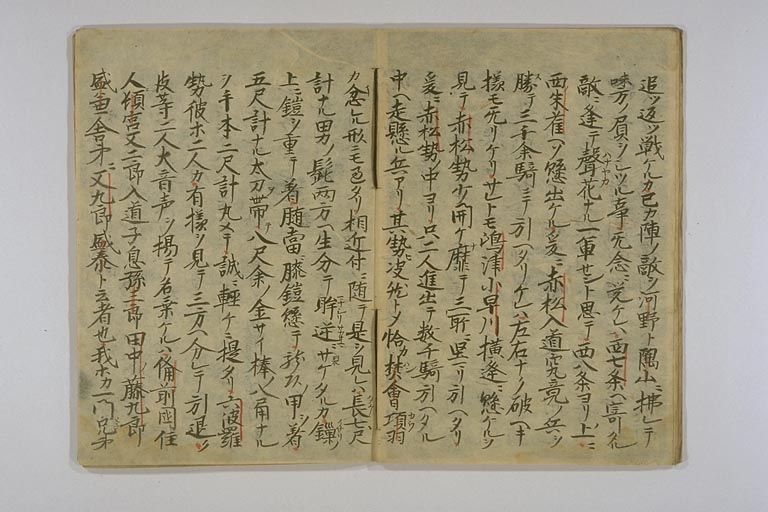 追ツ返ツ戦ケルカ己カ陣ノ敵ヲ河野ト陶山ニ拂レテ
味方ノ負ヲシツル事無念ニ覚ケレハ西七条ヘ寄タル
敵ニ逢テ聲花ナル一軍セント思テ西八条ヨリ上ニ
西朱雀ヘソ懸出ケル爰ニ赤松入道究竟ノ兵ヲ
勝テ三千余騎ニテ引ヘタリケレハ左右ナク破ヘキ
様モ无リケリサレトモ鴻津小早川横逢ニ懸ケルヲ
見テ赤松勢少ノ開ケ靡テ三所ニ引ヘタリ
爰ニ赤松勢ノ中ヨリ只二人進出テ数千騎引ヘタル
中ヘ走懸ル兵アリ其勢決然トメ恰樊會項羽
カ忿ル形ニモ過タリ相近付ニ随テ是ヲ見レハ長七尺
計ナル男ノ髭両方ヘ生分テ眸逆サケタルカ鏁ノ
上ニ鎧ヲ重テ着膸當ニ膝鎧懸テ龍頭甲ヲ着
五尺計ナル太刀帯ナ八尺余ノ金サイ棒ノ八角ナル
ヲ手本二尺計丸メテ誠ニ軽ケニ提タリ六波羅
勢彼等二人カ有様ヲ見テ三方ヘ分レテ引退ソ
彼等二人大音声ヲ揚テ名乗ケルハ備前国住
人頓宮又二郎入道子息孫三郎田中ノ藤九郎
盛兼舎弟ニ又九郎盛泰ト云者也我等カ一門兄弟